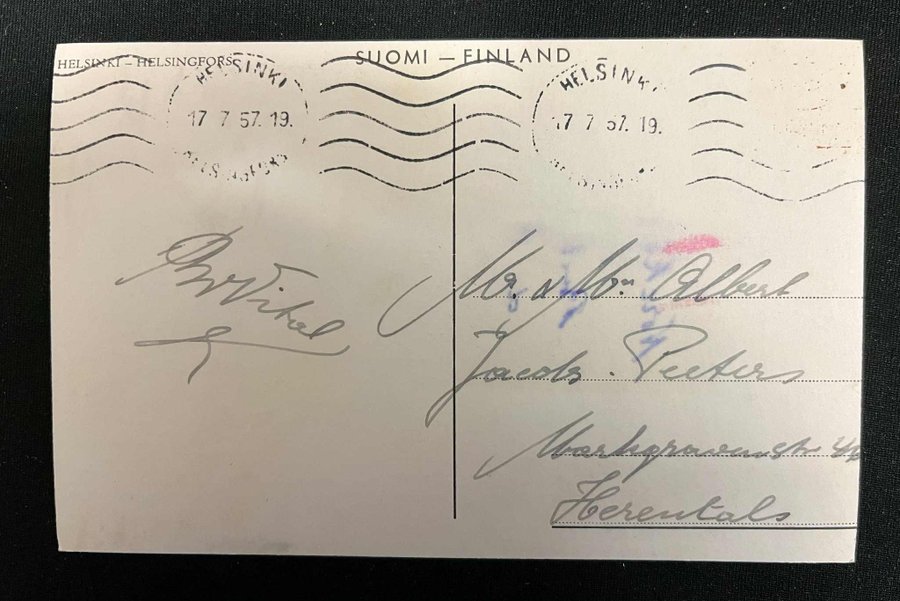 HELSINKI – HELSINGFORS
SUOMI – FINLAND
HELSINKI
17 7 57. 19.
HELSINGFORS
HELSINKI
17 7 57. 19.
HELSINGFORS
Vital
Mr. & Mme Albert
Jacobs - Peeters
Markgravenstr
Herentals